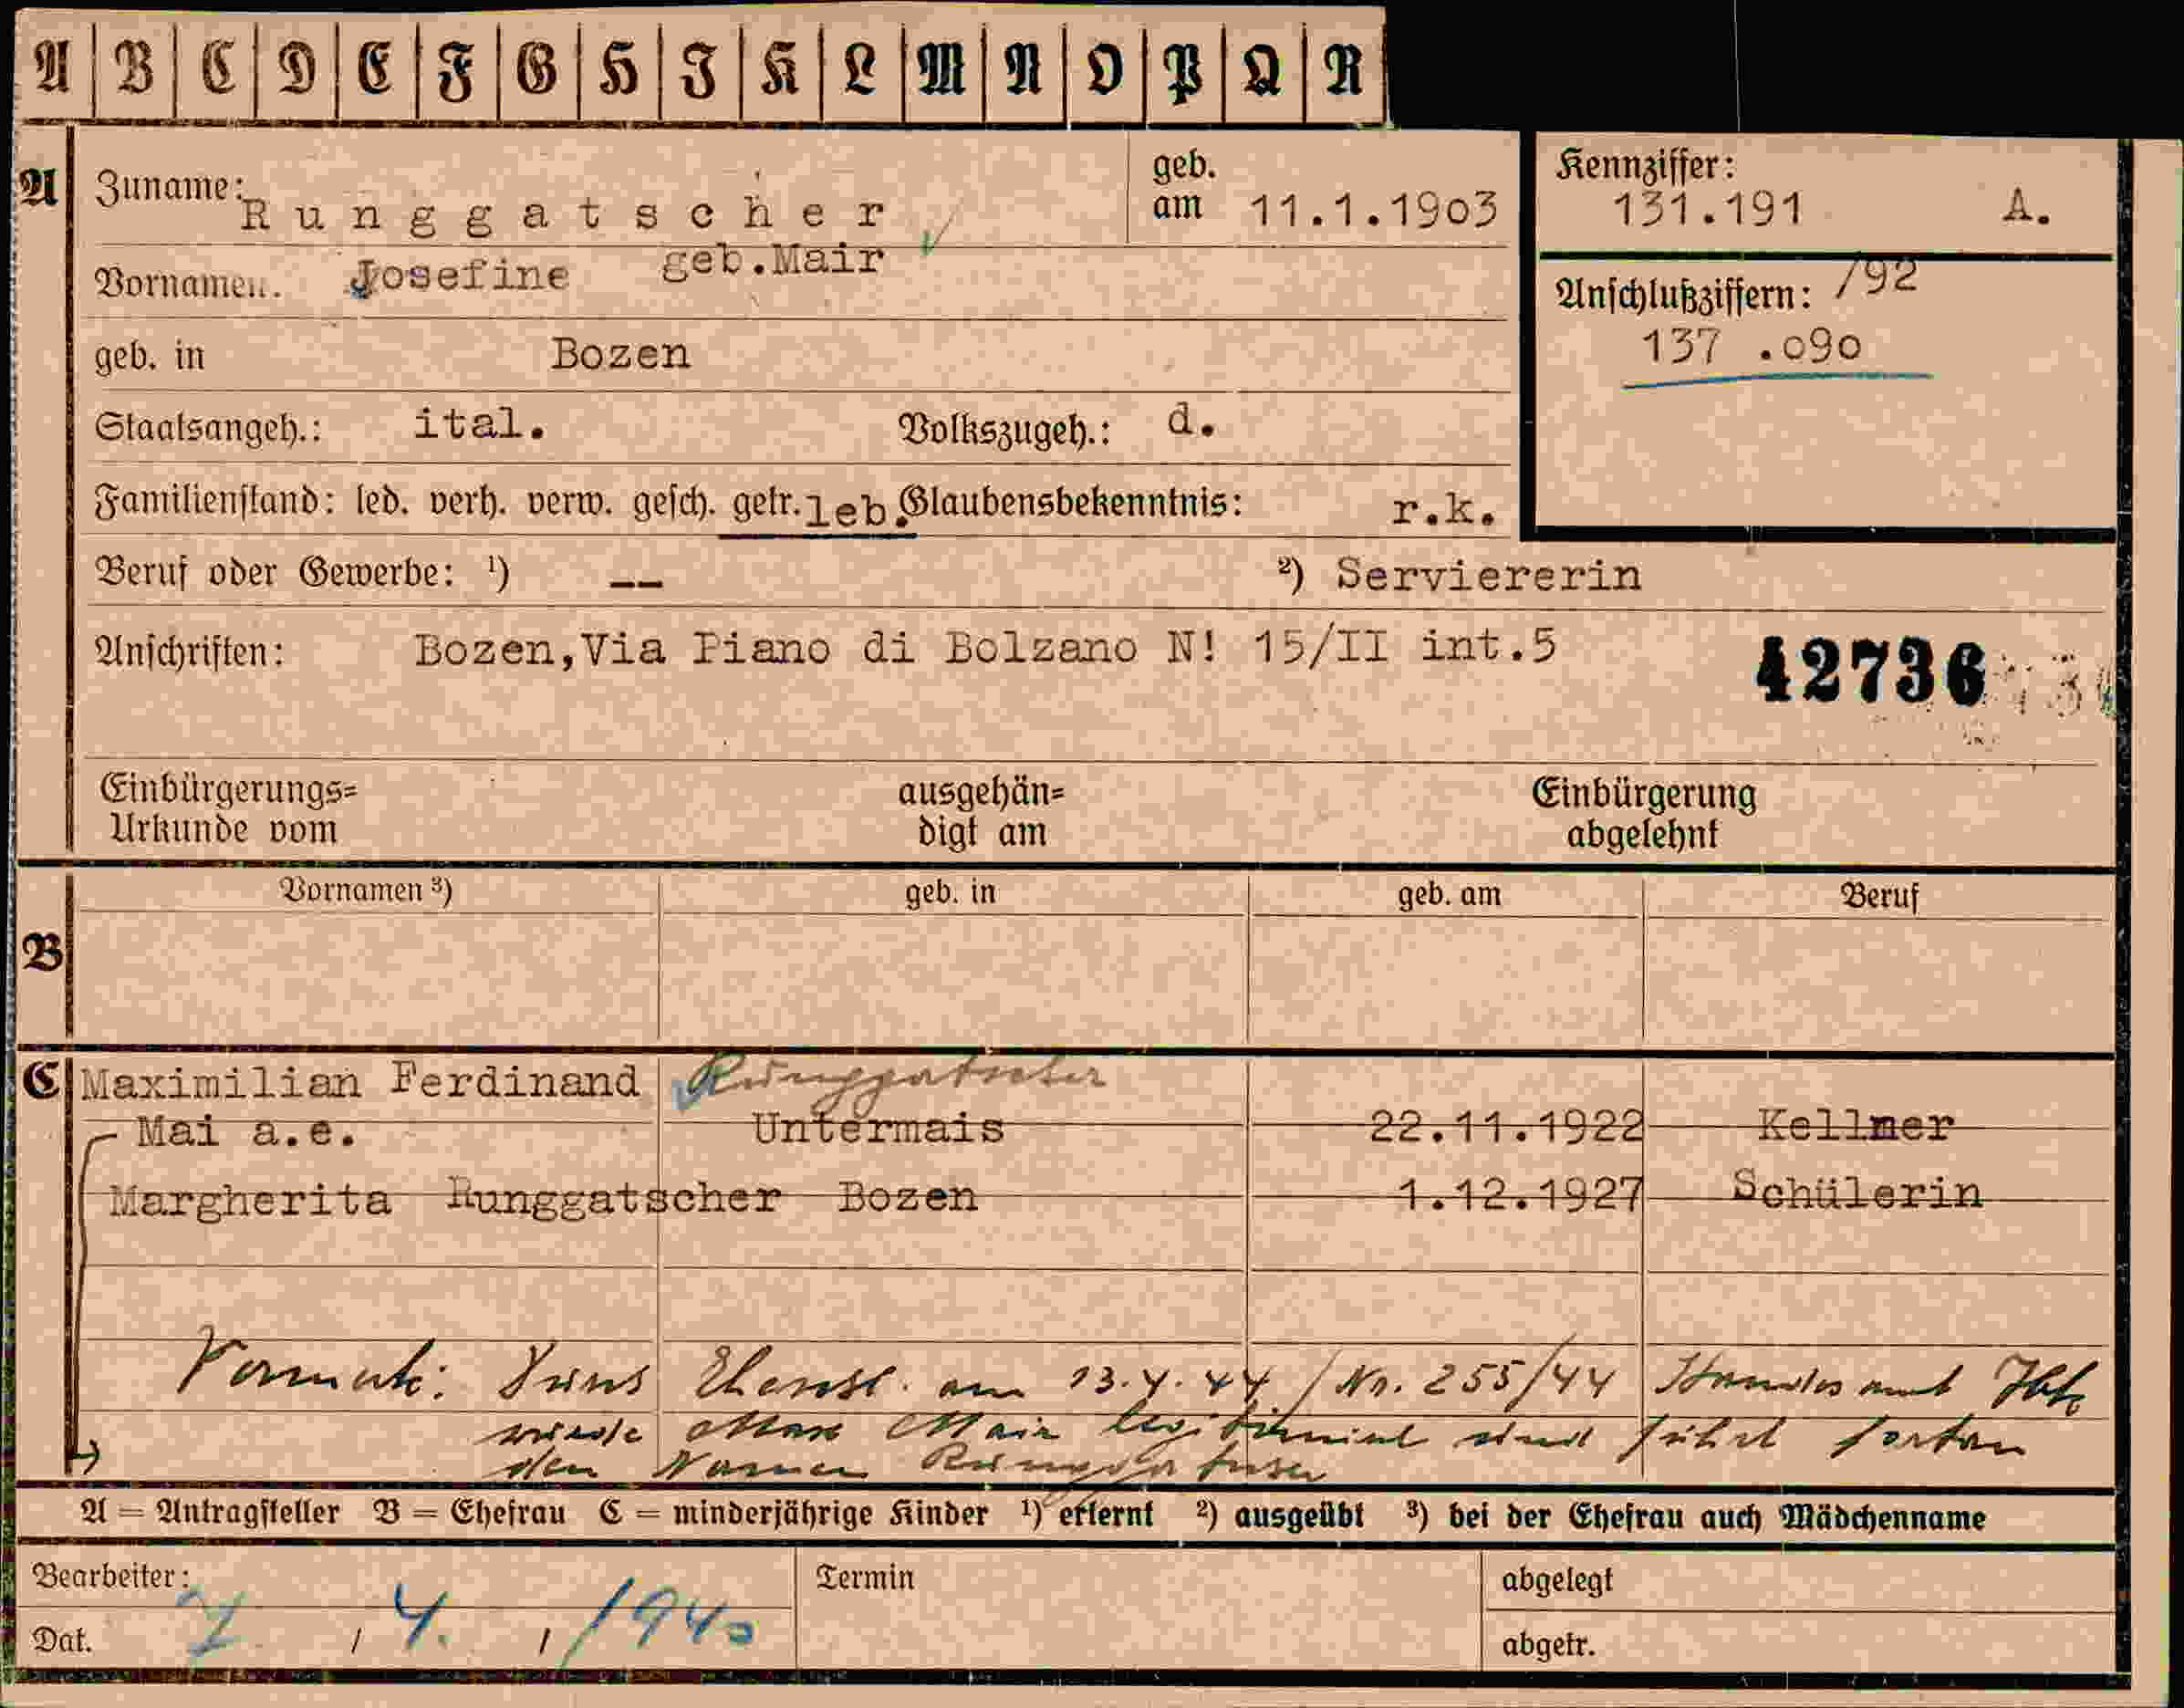 A B C D E F G H I K L M N O P Q R
A Zuname: Runggatscher geb. am 11.1.1903
Kennziffer: 131.191 A.
Vornamen. Josefine geb.Mair
Anschlußziffern: /92
137 .090
geb. in Bozen
Staatsangeh.: ital. Volkszugeh.: d.
Familienstand: led. verh. verw. gesch. getr.leb. Glaubensbekenntnis: r.k.
Beruf oder Gewerbe: ¹) -- ²) Serviererin
Anschriften: Bozen,Via Piano di Bolzano N! 15/II int.5
42736
Einbürgerungs= ausgehän= Einbürgerung
Urkunde vom digt am abgelehnt
Vornamen ³) geb. in geb. am Beruf
B
C Maximilian Ferdinand Runggatscher
Mai a.e. Untermais 22.11.1922 Kellner
Margherita Runggatscher Bozen 1.12.1927 Schülerin
am 13.4.44 / Nr. 255/44 Standesamt
wurde Max Mair legitimiert und führt fortan
den Namen Runggatscher
A = Antragsteller B = Ehefrau C = minderjährige Kinder ¹) erlernt ²) ausgeübt ³) bei der Ehefrau auch Mädchenname
Bearbeiter: Termin abgelegt
Dat. 7 / 4. / 1940 abgetr.